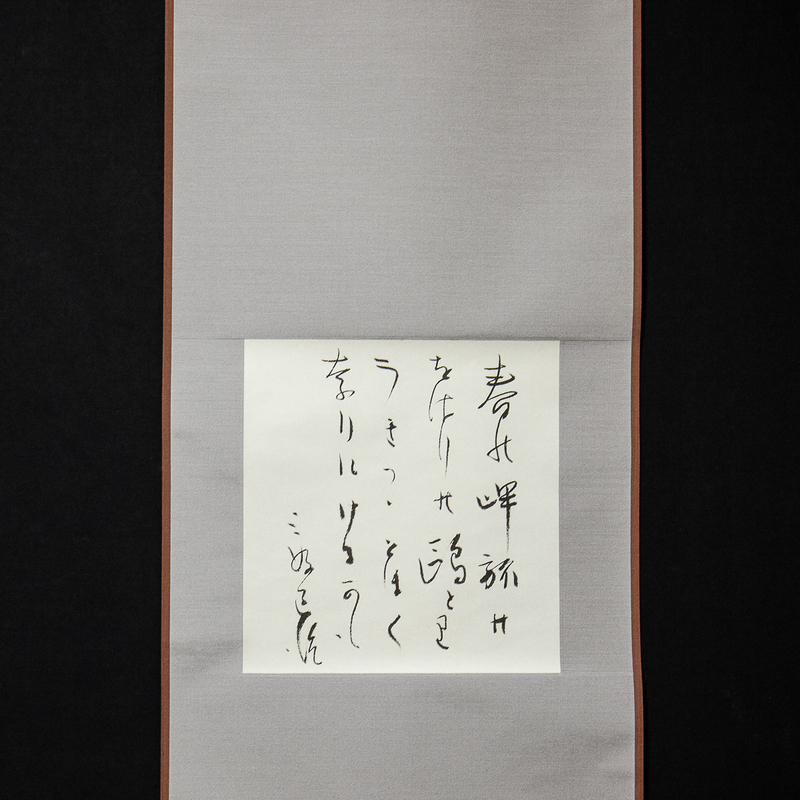 春の岬旅の
をはりの鴎とり
うきつゝとほく
奈りにけるかも
三好達治